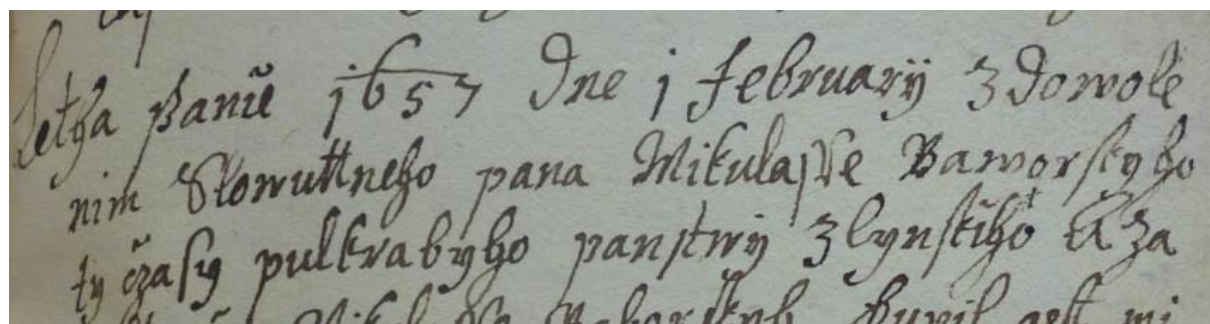 Letha Panie 1657 dne 1 February z dowole
nim Slowuttneho pana Mikulasse Baworskyho
ty čzasy pulkrabyho panstwy Zlynskiho A za